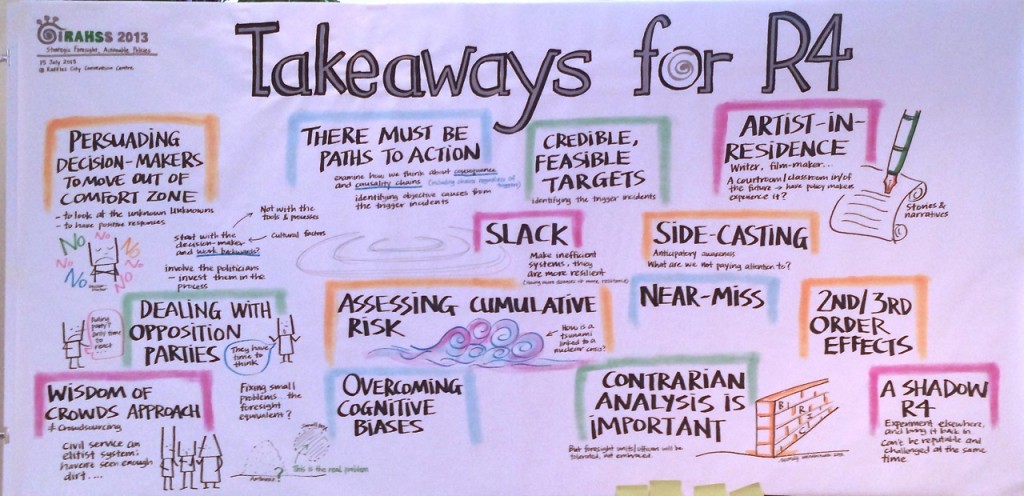 IRAHSS 2013
Strategic Foresight, Actionable Policies
15 July 2013
@ Raffles City Convention Centre
Takeaways for R4
PERSUADING
DECISION-MAKERS
TO MOVE OUT OF
COMFORT ZONE
- to look at the unknown unknowns
- to have positive responses
No
No
No
No
No
No
No
start with the
decision-maker
and work backwards?
Not with the
tools & processes
Cultural factors
involve the politicians
- invest them in the
process
THERE MUST BE
PATHS TO ACTION
examine how we think about consequence
and causality chains
identifying objective causes from
the trigger incidents
CREDIBLE,
FEASIBLE
TARGETS
identifying the trigger incidents
ARTIST-IN-
RESIDENCE
Writer, film-maker...
A courtroom/classroom in/of
the future → have policy makers
experience it?
Stories &
narratives
SLACK
Make inefficient
systems, they
are more resilient
SIDE-CASTING
Anticipatory awareness
What are we not paying attention to?
DEALING WITH
OPPOSITION
PARTIES
Ruling
party?
Only time
to
react...
They have
time to
think
ASSESSING CUMULATIVE
RISK
How is a
tsunami
linked to a
nuclear crisis?
NEAR-MISS
2ND/3RD
ORDER
EFFECTS
WISDOM OF
CROWDS APPROACH
& Crowdsourcing
Civil service an
elitist system:
haven't seen enough
dirt....
Fixing small
problems... the
foresight
equivalent?
?
This is the real problem
OVERCOMING
COGNITIVE
BIASES
CONTRARIAN
ANALYSIS IS
IMPORTANT
But foresight units/officers will be
tolerated, not embraced.
A SHADOW
R4
Experiment elsewhere,
and bring it back in.
Can't be reputable and
challenged at the same
time.